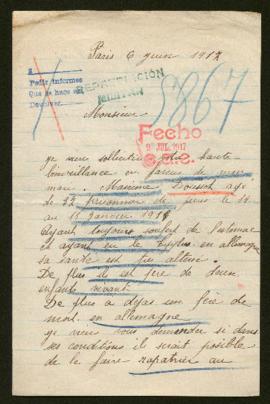 Paris 6 juin 1917
Pedir informes
Que se hace en
Devolver
REPATRIACIÓN
MILITAR
5867
Monsieur
Fecho
9 JUL. 1917
je viens solliciter votre haute
bienveillance en faveur de mon
mari. Maxime Doussot agé
de 32 prisonnier de guerre le 14
au 15 janvier 1915
Ayant toujours souffert de l'estomac
et ayant eu le typhus en allemagne
sa santé est fort altérée.
De plus il est père de deux
enfants vivants.
De plus a déjas un frère de
mort en allemagne
je viens vous demander si dans
ses conditions il serait possible
de le faire rapatrier au